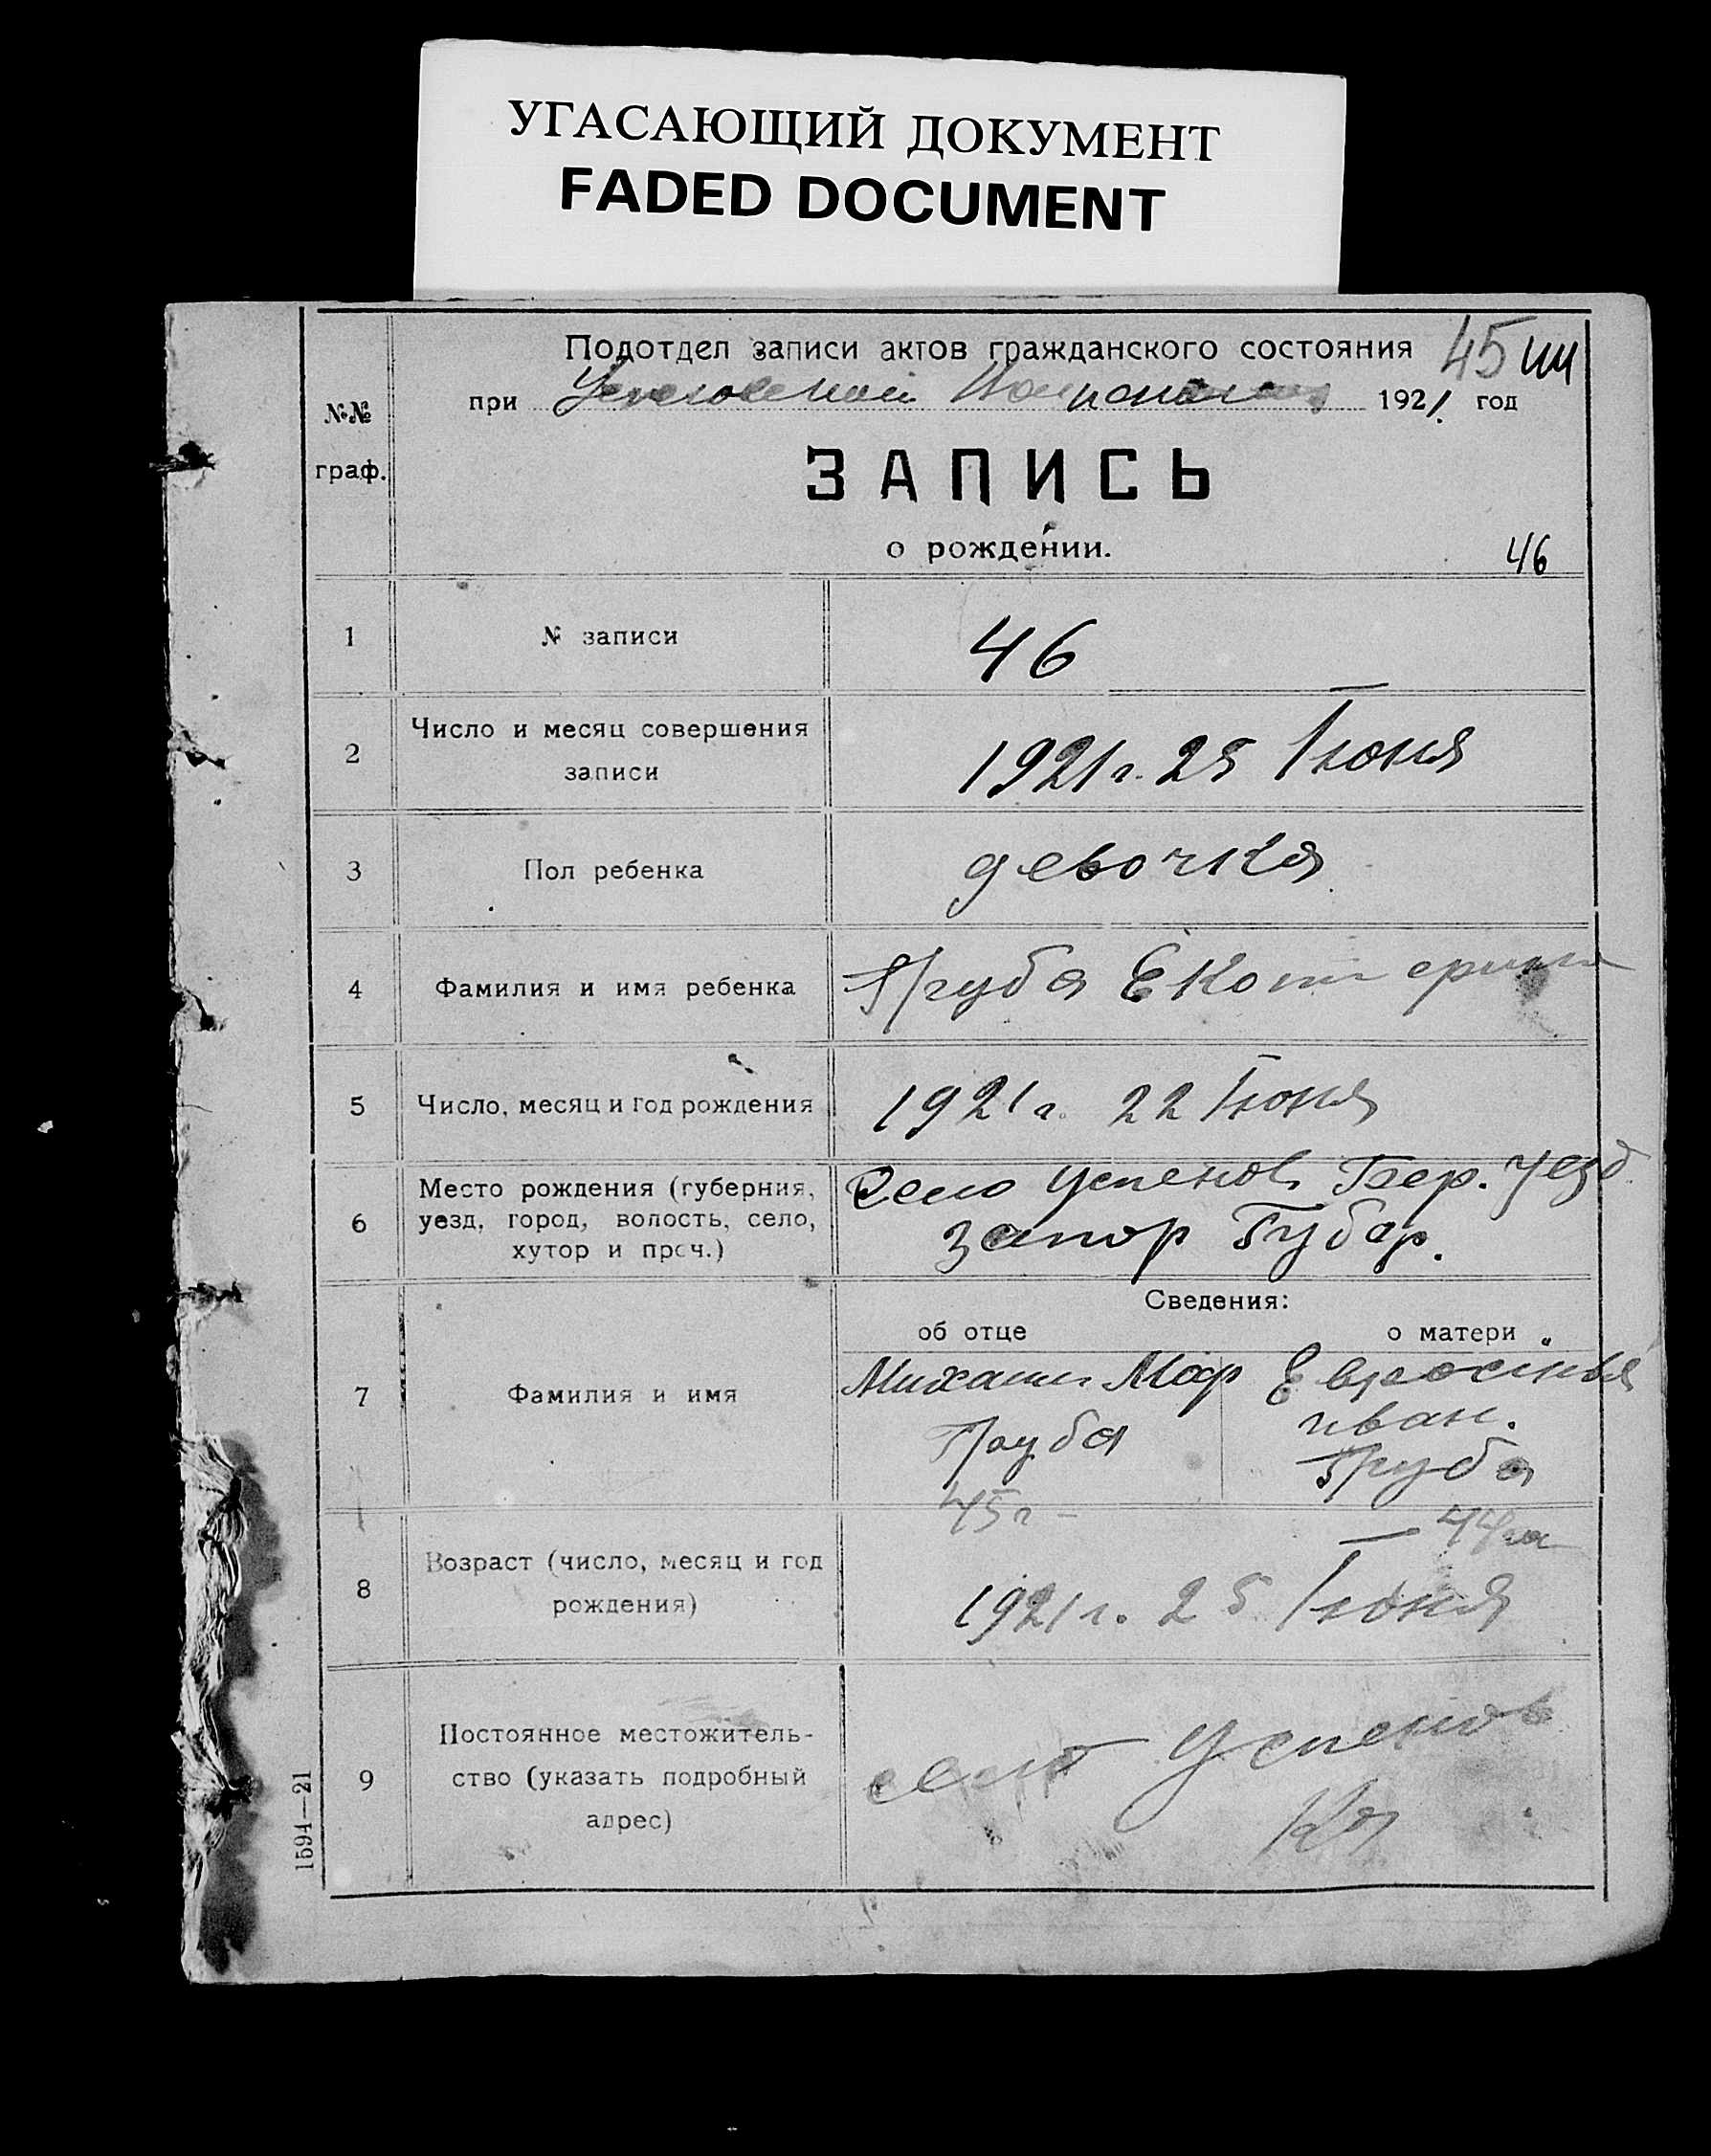 УГАСАЮЩИЙ ДОКУМЕНТ
FADED DOCUMENT
Подотдел записи актов гражданского состояния
45
при 1921 год
№№
граф.
ЗАПИСЬ
о рождении.
46
1 № записи 46
2 Число и месяц совершения
записи
1921 г. 25 Июня
3 Пол ребенка девочка
4 Фамилия и имя ребенка Груба Екатерина
5 Число, месяц и год рождения 1921 г. 22 Июня
6 Место рождения (губерния,
уезд, город, волость, село,
хутор и проч.)
Село Успенов. уезд.
Запор Губер.
Сведения:
об отце о матери
7 Фамилия и имя
Михаил Мар
Груба
45 г
Ефросинья
иван.
Груба
44
8 Возраст (число, месяц и год
рождения)
1921 г. 25 Июня
9 Постоянное местожитель-
ство (указать подробный
адрес)
село Успенов
ка
1594—21